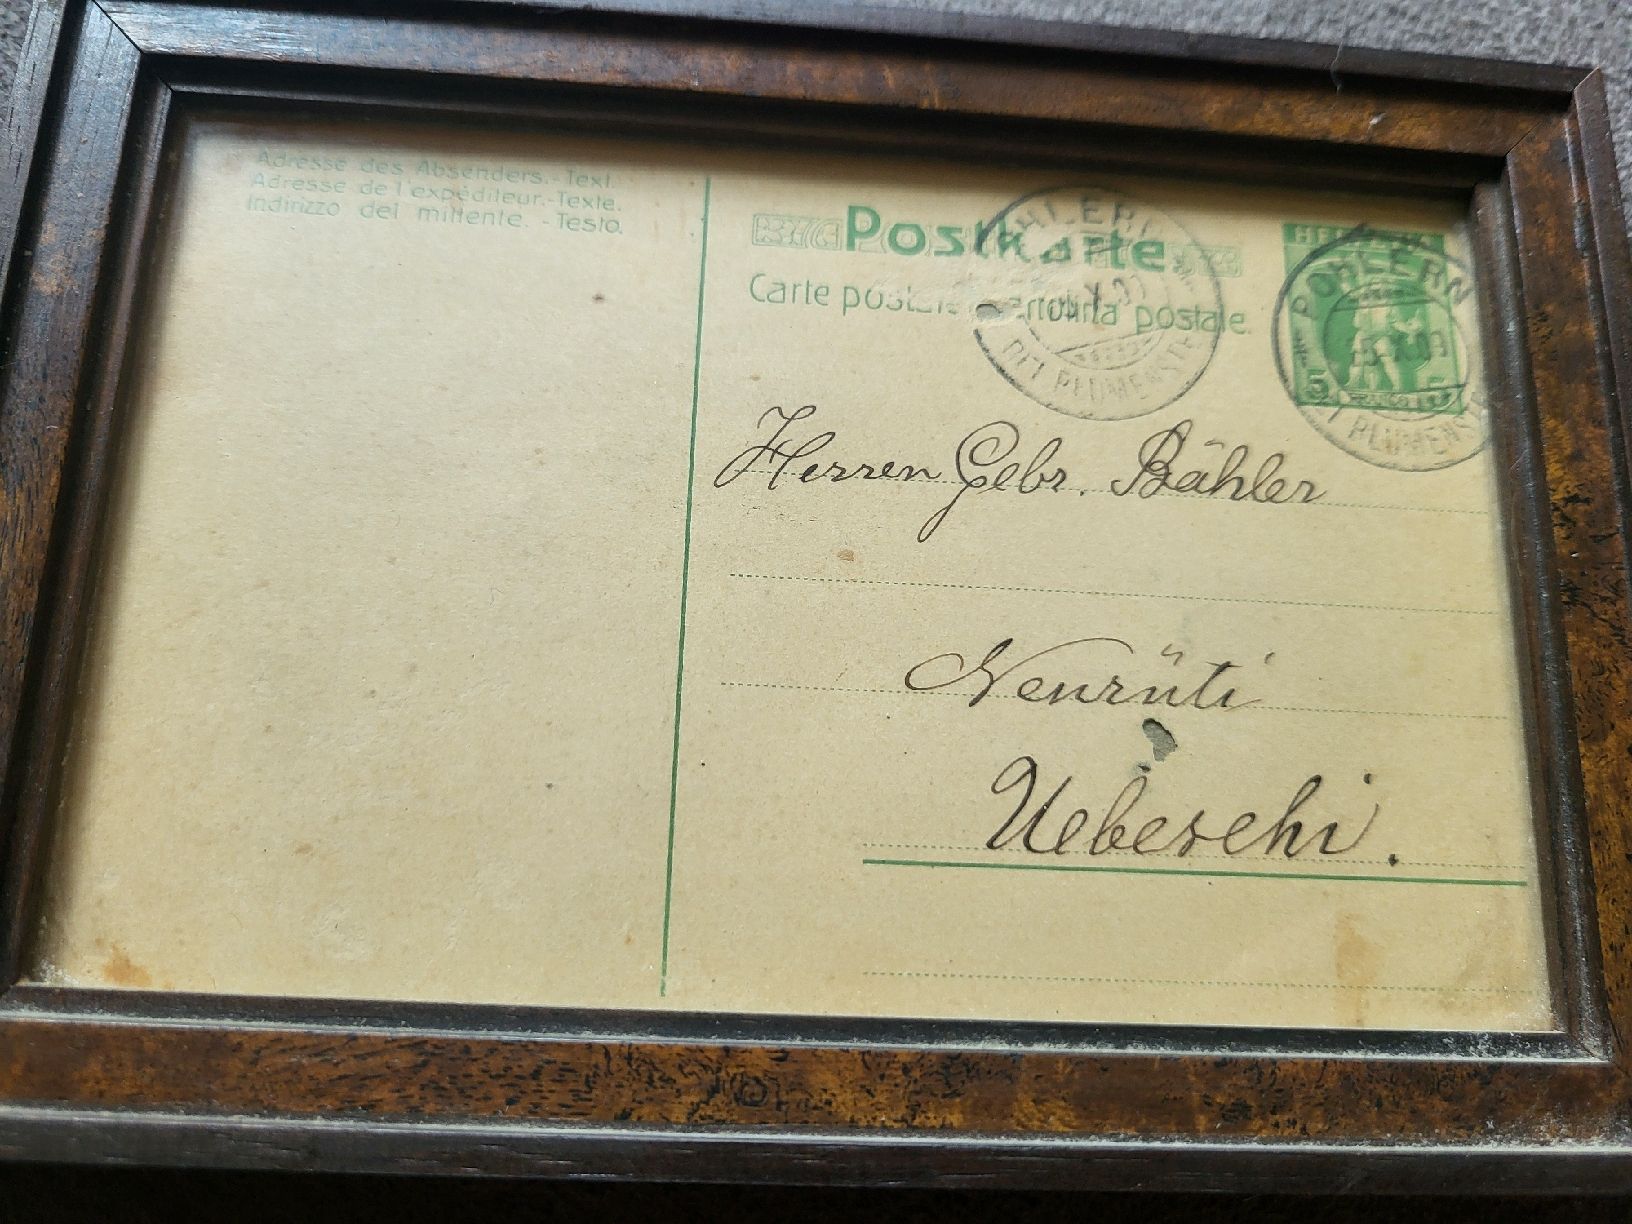 Adresse des Absenders.-Text.
Adresse de l'expéditeur.-Texte.
Indirizzo del mittente. -Testo.
Postkarte.
Carte postale. Cartolina postale.
POHLERN
BEI BLUMENSTEIN
HELVETIA
POHLERN
BEI BLUMENSTEIN
5
FRANCO
5
Herren Gebr. Bähler
Neurüti
Uebeschi.